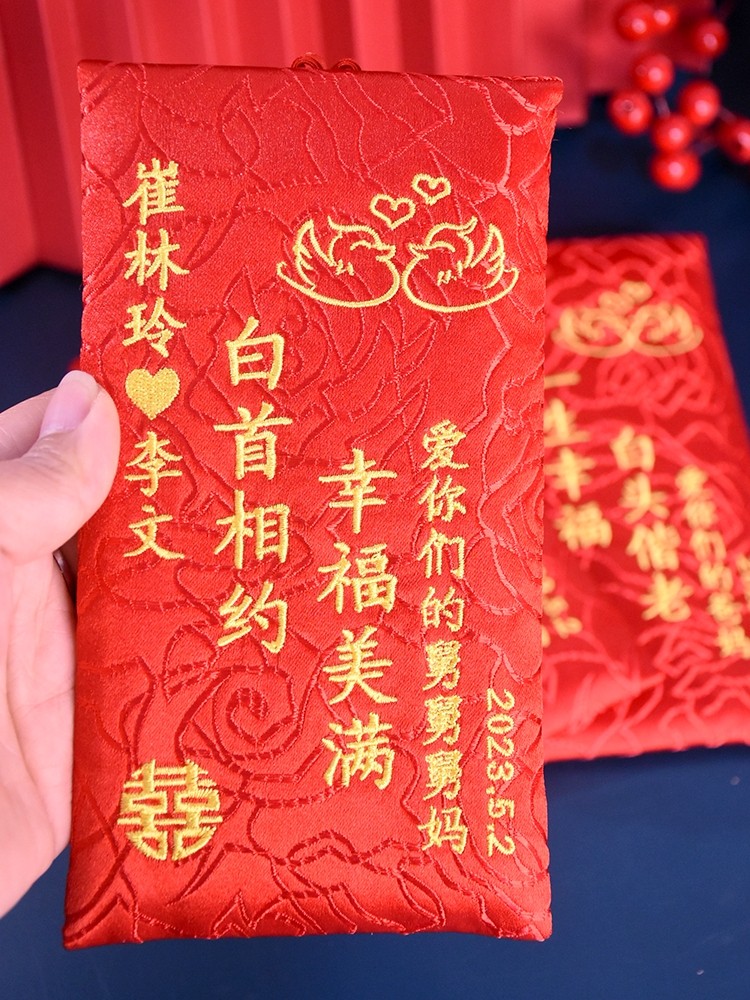 崔林玲李文
白首相约
幸福美满
爱你们的舅舅舅妈
2023.5.2
囍
一生幸福
白头偕老
爱你们的